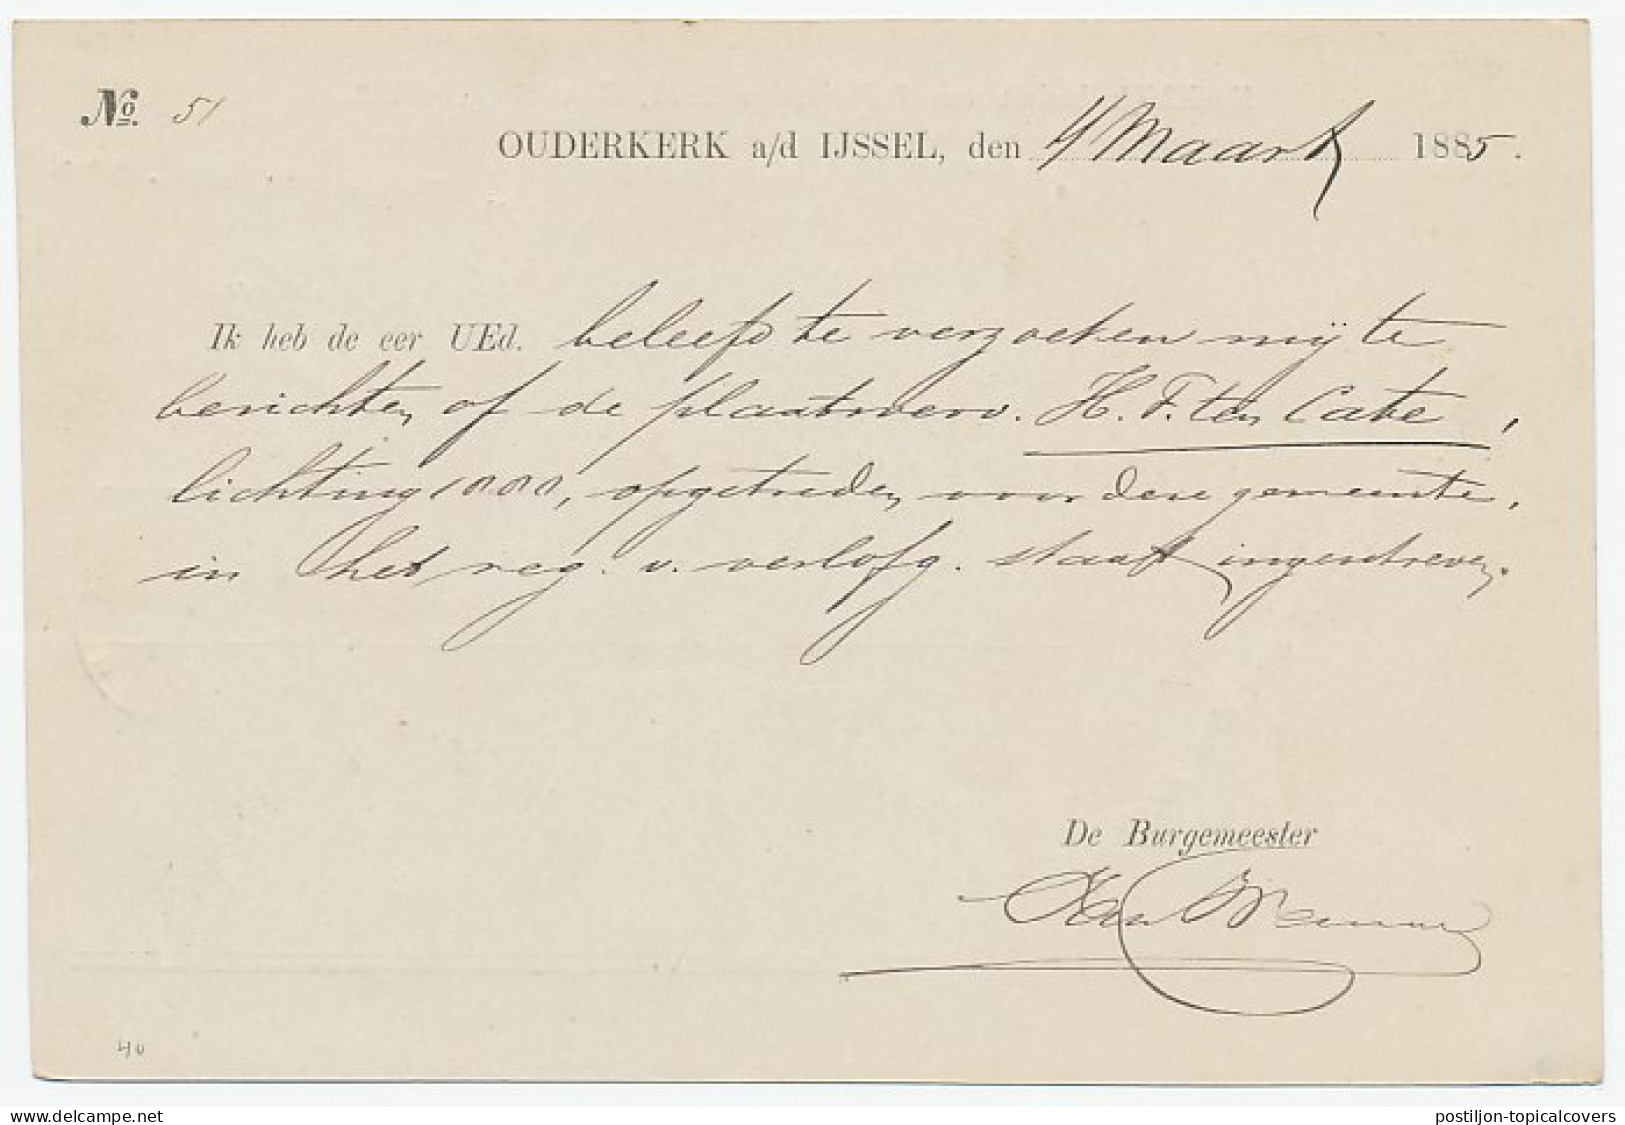 No. 51
OUDERKERK a/d IJSSEL, den 4 Maart 1885.
Ik heb de eer UEd. beleefd te verzoeken mij te
berichten of de plaatsverv. H. F. ten Cate,
lichting 1880, opgetreden voor deze gemeente,
in het reg. v. verlofg. staat ingeschreven.
De Burgemeester
40
delcampe.net
postiljon-topicalcovers